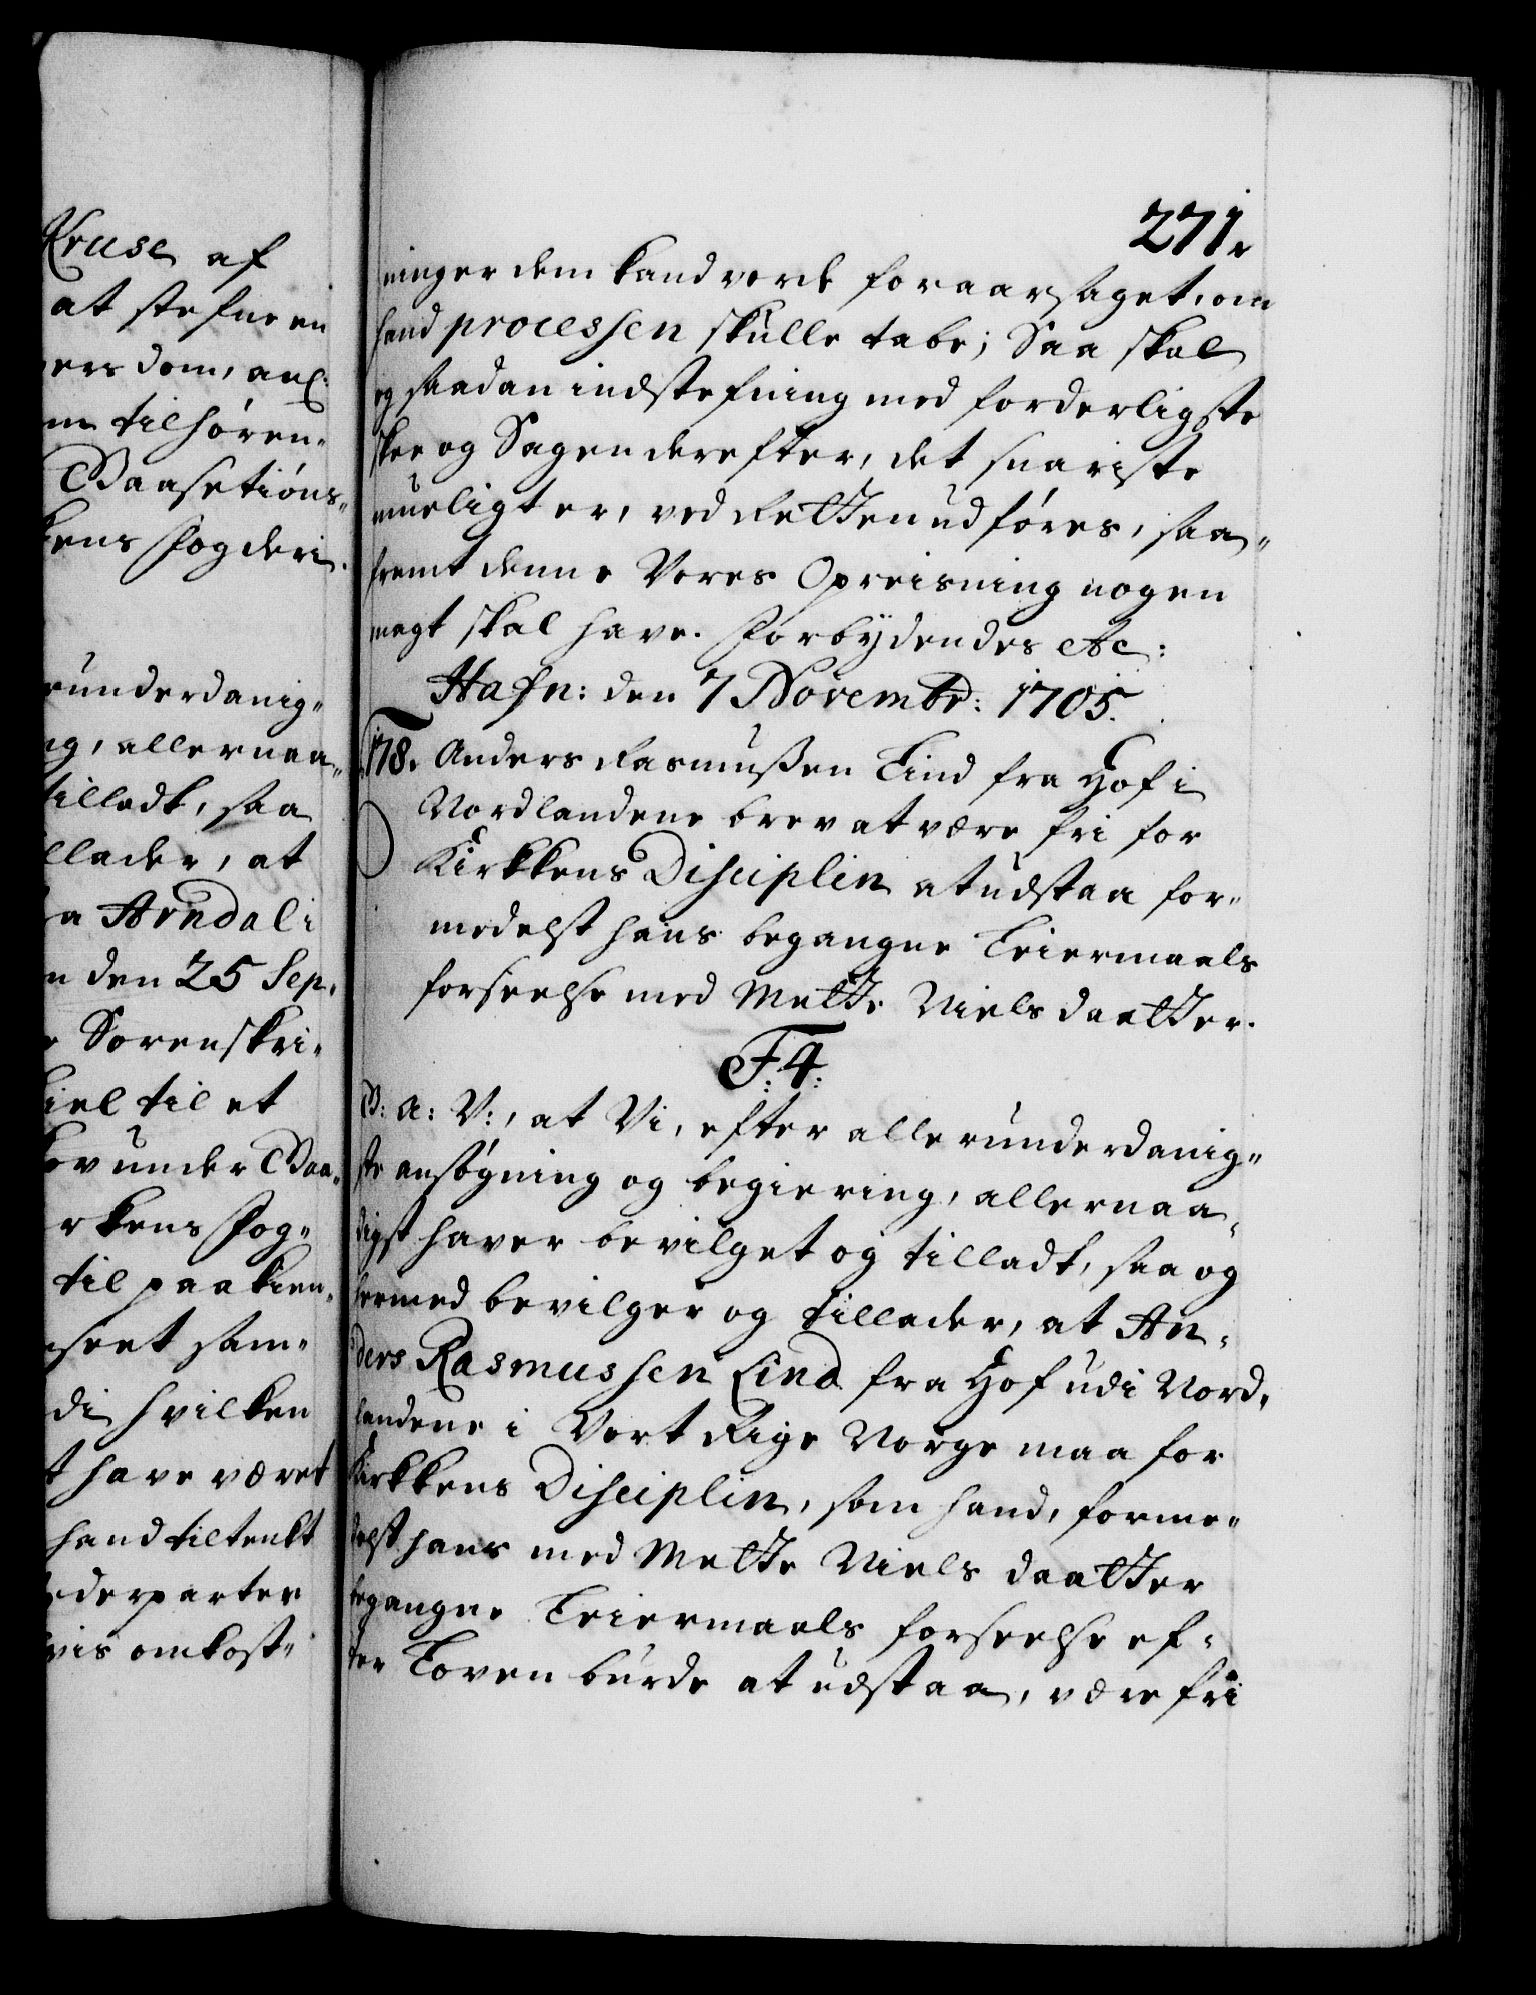 Kruse af
at stefne en
ers dom, anl:
m tilhøren-
Baasetiøns-
kens fogderi.
runderdanig-
ng, allernaa-
tilladt, saa
llader, at
a Arndal i
n den 25 Sep.
Sorenskri-
kiel til et
kov under Baa-
rkens fog-
til paakien-
seet sam-
di hvilken
t have været
hand tiltenkt
ederparter
vis omkost-
271r
ninger dem kand vorde foraarsaget, om
hand processen skulle tabe; Saa skal
og saadan indstefning med forderligste
skee og Sagen derefter, det snariste
mueligt er, ved Retten udføres, saa-
fremt denne Vores Opreisning nogen
magt skal have. Forbydendes etc:
Hafn: den 7 Novembr: 1705.
178. Anders Rasmussen Lind fra Hof i
Nordlandene brev at være fri for
Kirkkens Disciplin at udstaa for-
medelst hans begangne Leiermaals
forseelse med Mette Niels daatter.
F: 4:
G: A: V:, at Vi, efter allerunderdanig-
ste ansøgning og begiering, allernaa-
digst haver bevilget og tilladt, saa og
hermed bevilger og tillader, at An-
ders Rasmussen Lind fra Hof udi Nord-
landene i Vort Rige Norge maa for
Kirkkens Disciplin, som hand, forme-
delst hans med Mette Niels daatter
begangne Leiermaals forseelse ef-
ter Loven burde at udstaa, være fri